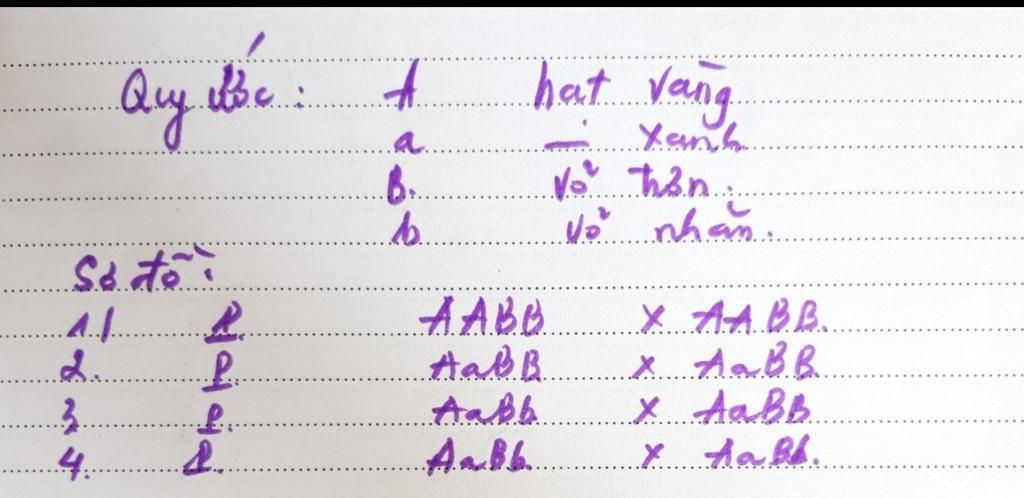 Quy ước: A hạt vàng
a — xanh
B. vỏ trơn.
b vỏ nhăn.
Sơ đồ:
1/ P. AABB x AABB.
2. P. AaBB x AaBB
3 P. AaBb x AaBB
4. P. AaBb. x AaBb.